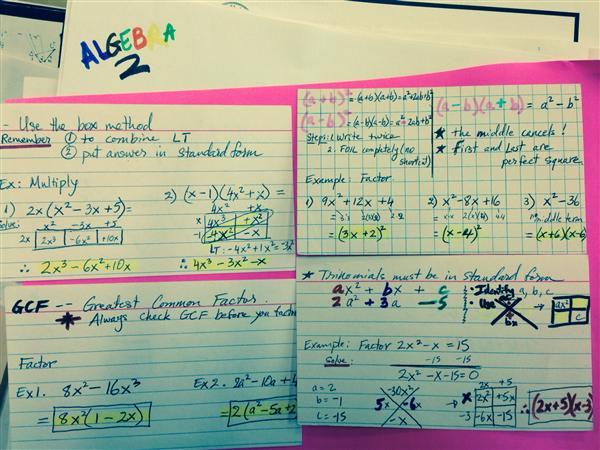 ALGEBRA
2
- Use the box method
Remember ① to combine LT
② put answer in standard form
Ex: Multiply
1) 2x(x²-3x+5)=
Solve: x² -3x +5
2x 2x³ -6x² +10x
∴ 2x³-6x²+10x
2) (x-1)(4x²+x)=
4x² +x
x 4x³ +x²
-1 -4x² -x
LT: -4x²+1x²=-3x²
∴ 4x³-3x²-x
(a+b)²=(a+b)(a+b)=a²+2ab+b²
(a-b)²=(a-b)(a-b)=a²-2ab+b²
Steps: 1. Write twice
2. FOIL completely (no
shortcut)
(a-b)(a+b)=a²-b²
* the middle cancels!
* First and Last are
perfect square.
Example: Factor
1) 9x²+12x+4
=(3x+2)²
2) x²-8x+16
=(x-4)²
3) x²-36
no middle term
=(x+6)(x-6)
GCF -- Greatest Common Factor.
* Always check GCF before you factor
Factor
Ex1. 8x²-16x³
= 8x²(1-2x)
Ex2. 2a²-10a+4
= 2(a²-5a+2
* Trinomials must be in standard form
ax²+bx+c
2a²+3a-5
Identify a, b, c
Use ac
+
bx
ax²
c
Example: Factor 2x²-x=15
Solve: -15 -15
2x²-x-15=0
a=2
b=-1
c=-15
-30x²
5x -6x
-x
2x +5
x 2x² +5x
-3 -6x -15
∴ (2x+5)(x-3)